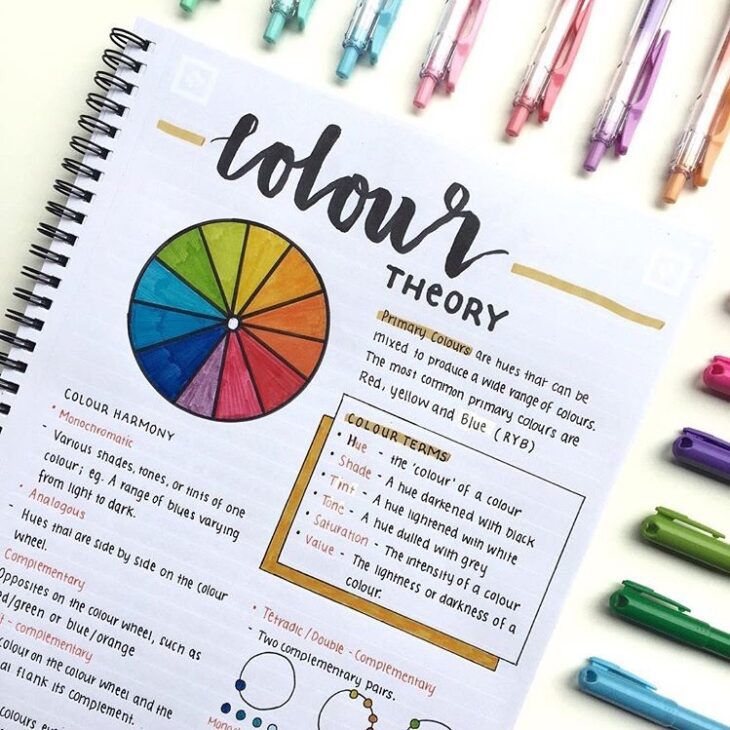 colour
THEORY
Primary Colours are hues that can be
mixed to produce a wide range of colours.
The most common primary colours are
Red, yellow and Blue (RYB)
COLOUR TERMS
• Hue - the 'colour' of a colour
• Shade - A hue darkened with black
• Tint - A hue lightened with white
• Tone - A hue dulled with grey
• Saturation - The intensity of a colour
• Value - The lightness or darkness of a
colour.
COLOUR HARMONY
• Monochromatic
- Various shades, tones, or tints of one
colour; eg. A range of blues varying
from light to dark.
• Analogous
- Hues that are side by side on the colour
wheel.
Complementary
Opposites on the colour wheel, such as
red/green or blue/orange
- complementary
colour on the colour wheel and the
flank its complement.
colours
• Tetradic / Double - Complementary
- Two complementary pairs.